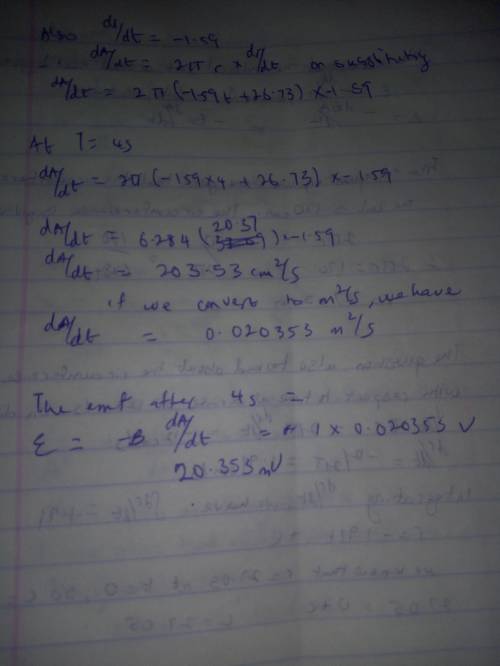 Also dr/dt = -1.59
dA/dt = 2π r × dr/dt on substituting
dA/dt = 2π (-1.59t + 26.73) × -1.59
At T = 4s
dA/dt = 2π (-1.59×4 + 26.73) × -1.59
dA/dt = 6.284 (20.37) × -1.59
dA/dt = 203.53 cm²/s
if we convert to m²/s, we have
dA/dt = 0.020353 m²/s
The emf after 4s =
ε = -B dA/dt = 1 × 0.020353 V
20.353 mV